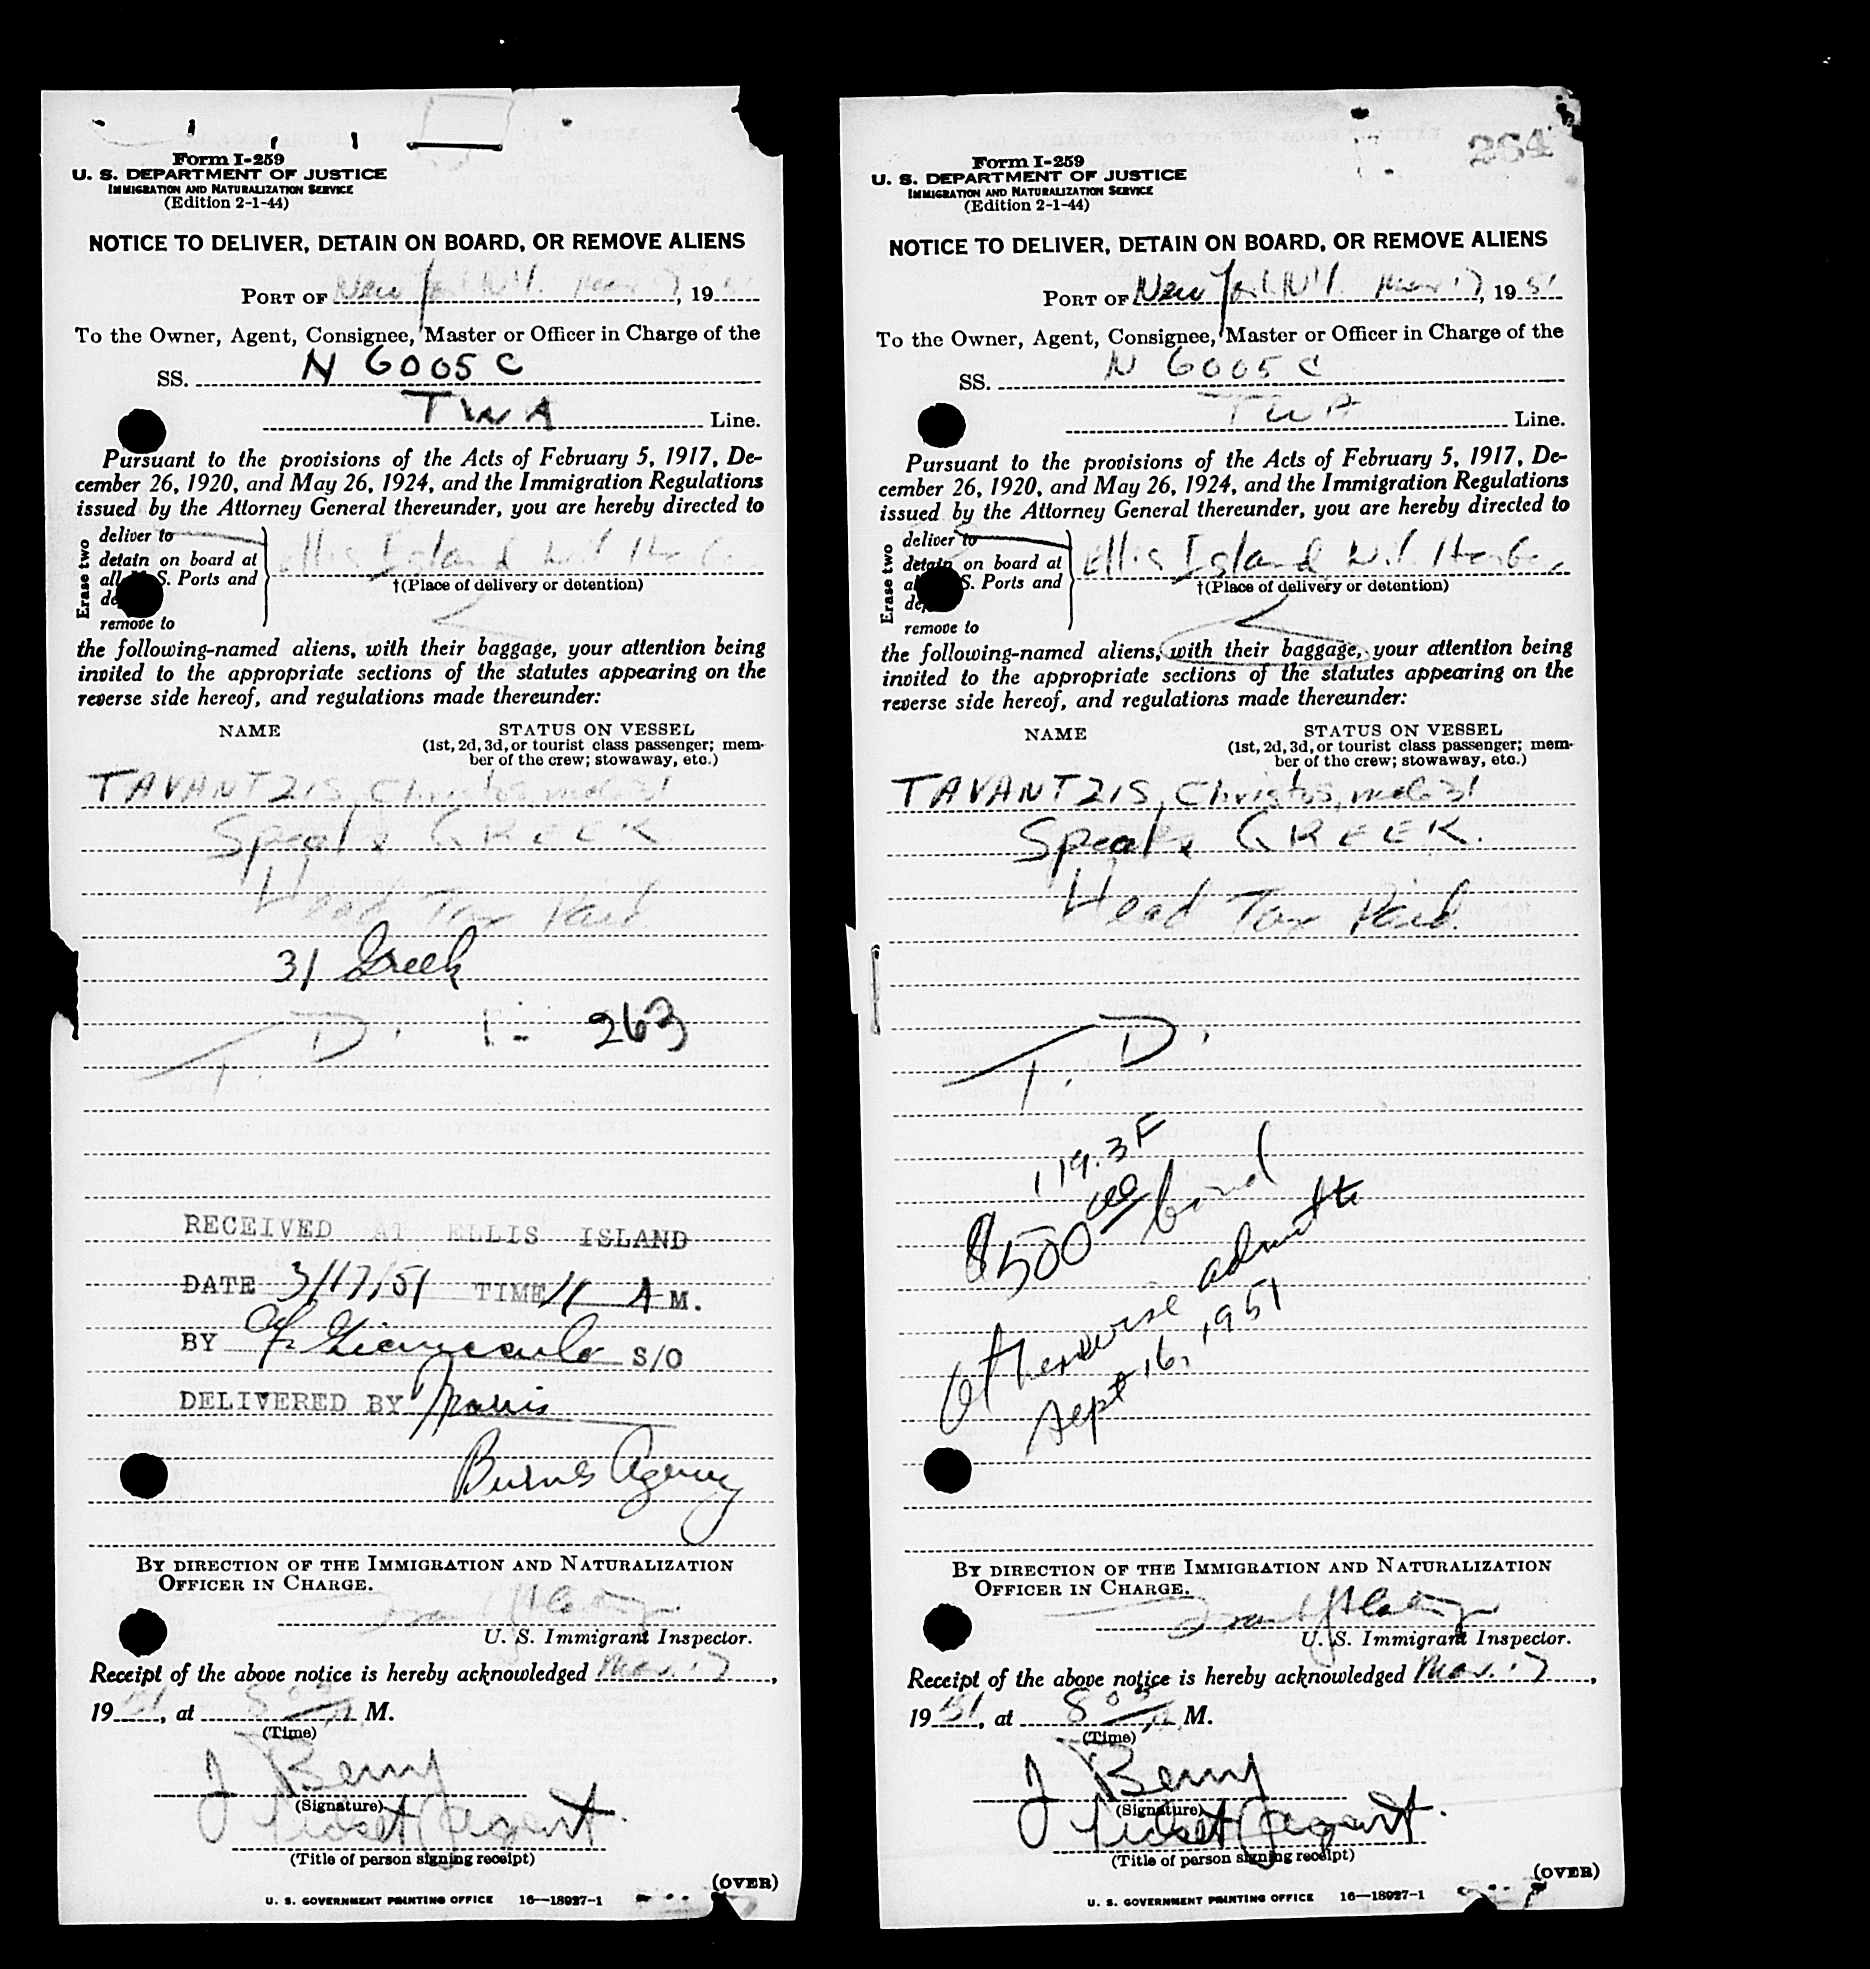 Form I-259
U. S. DEPARTMENT OF JUSTICE
IMMIGRATION AND NATURALIZATION SERVICE
(Edition 2-1-44)
NOTICE TO DELIVER, DETAIN ON BOARD, OR REMOVE ALIENS
PORT OF New York N.Y. Mar 17, 1951
To the Owner, Agent, Consignee, Master or Officer in Charge of the
SS. N 6005 C
TWA Line.
Pursuant to the provisions of the Acts of February 5, 1917, De-
cember 26, 1920, and May 26, 1924, and the Immigration Regulations
issued by the Attorney General thereunder, you are hereby directed to
Erase two
deliver to
detain on board at
all S. Ports and
remove to
Ellis Island N.Y. Harbor
†(Place of delivery or detention)
the following-named aliens, with their baggage, your attention being
invited to the appropriate sections of the statutes appearing on the
reverse side hereof, and regulations made thereunder:
NAME
STATUS ON VESSEL
(1st, 2d, 3d, or tourist class passenger; mem-
ber of the crew; stowaway, etc.)
TAVANTZIS, Christos, male 31
Speaks GREEK
Head Tax Paid
31 Greek
T. D. 1- 263
RECEIVED AT ELLIS ISLAND
DATE 3/17/51 TIME 11 A M.
BY S/O
DELIVERED BY
Burns Agency
BY DIRECTION OF THE IMMIGRATION AND NATURALIZATION
OFFICER IN CHARGE.
U. S. Immigrant Inspector.
Receipt of the above notice is hereby acknowledged Mar. 17,
1951, at 8 M.
(Time)
J Berry
(Signature)
Ticket Agent.
(Title of person signing receipt)
(OVER)
U. S. GOVERNMENT PRINTING OFFICE 16—18927-1
264
Form I-259
U. S. DEPARTMENT OF JUSTICE
IMMIGRATION AND NATURALIZATION SERVICE
(Edition 2-1-44)
NOTICE TO DELIVER, DETAIN ON BOARD, OR REMOVE ALIENS
PORT OF New York N.Y. Mar 17, 1951
To the Owner, Agent, Consignee, Master or Officer in Charge of the
SS. N 6005 C
TWA Line.
Pursuant to the provisions of the Acts of February 5, 1917, De-
cember 26, 1920, and May 26, 1924, and the Immigration Regulations
issued by the Attorney General thereunder, you are hereby directed to
Erase two
deliver to
detain on board at
S. Ports and
remove to
Ellis Island N.Y. Harbor
†(Place of delivery or detention)
the following-named aliens, with their baggage, your attention being
invited to the appropriate sections of the statutes appearing on the
reverse side hereof, and regulations made thereunder:
NAME
STATUS ON VESSEL
(1st, 2d, 3d, or tourist class passenger; mem-
ber of the crew; stowaway, etc.)
TAVANTZIS, Christos, male 31
Speaks GREEK.
Head Tax Paid.
T. D.
119.3F
$500 00 bond
Otherwise admitte
Sept 16, 1951
BY DIRECTION OF THE IMMIGRATION AND NATURALIZATION
OFFICER IN CHARGE.
U. S. Immigrant Inspector.
Receipt of the above notice is hereby acknowledged Mar. 17,
1951, at 8 M.
(Time)
J Berry
(Signature)
Ticket Agent.
(Title of person signing receipt)
(OVER)
U. S. GOVERNMENT PRINTING OFFICE 16—18927-1